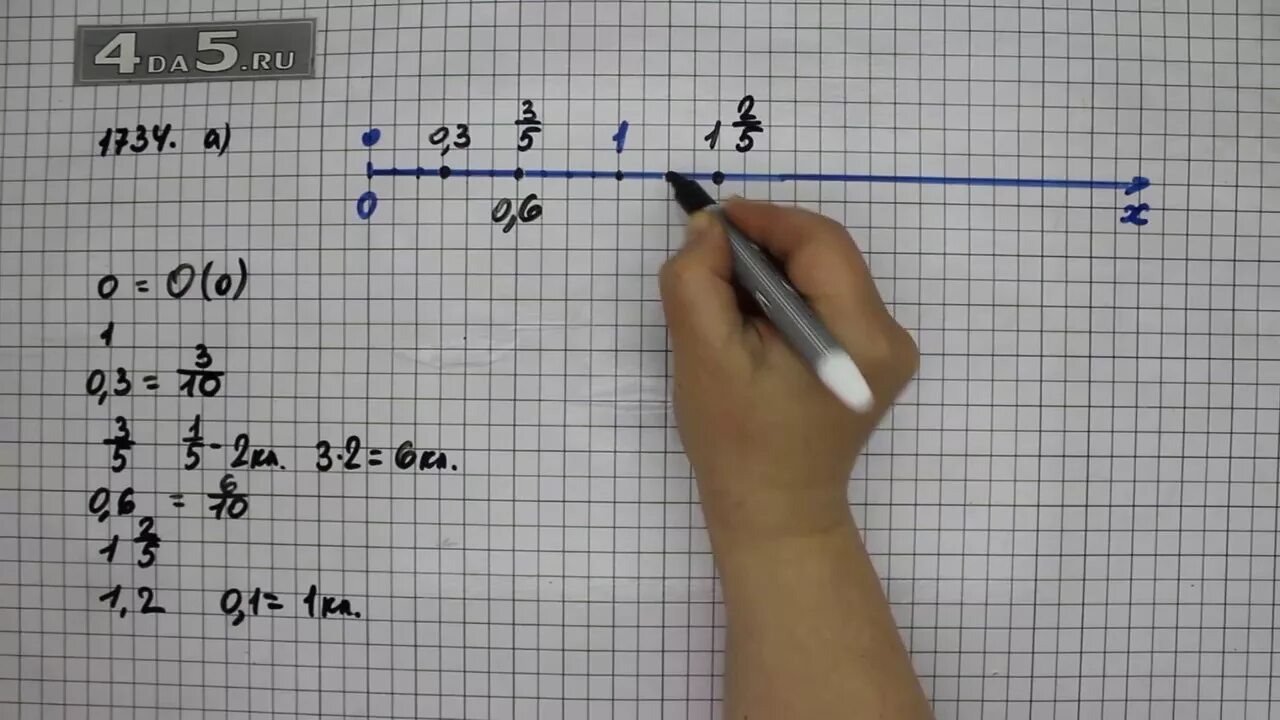 4DA5.RU
1734. а) 0 0,3 3/5 1 1 2/5
0 0,6 x
0 = O(0)
1
0,3 = 3/10
3/5 1/5 - 2кл. 3·2=6кл.
0,6 = 6/10
1 2/5
1,2 0,1= 1кл.